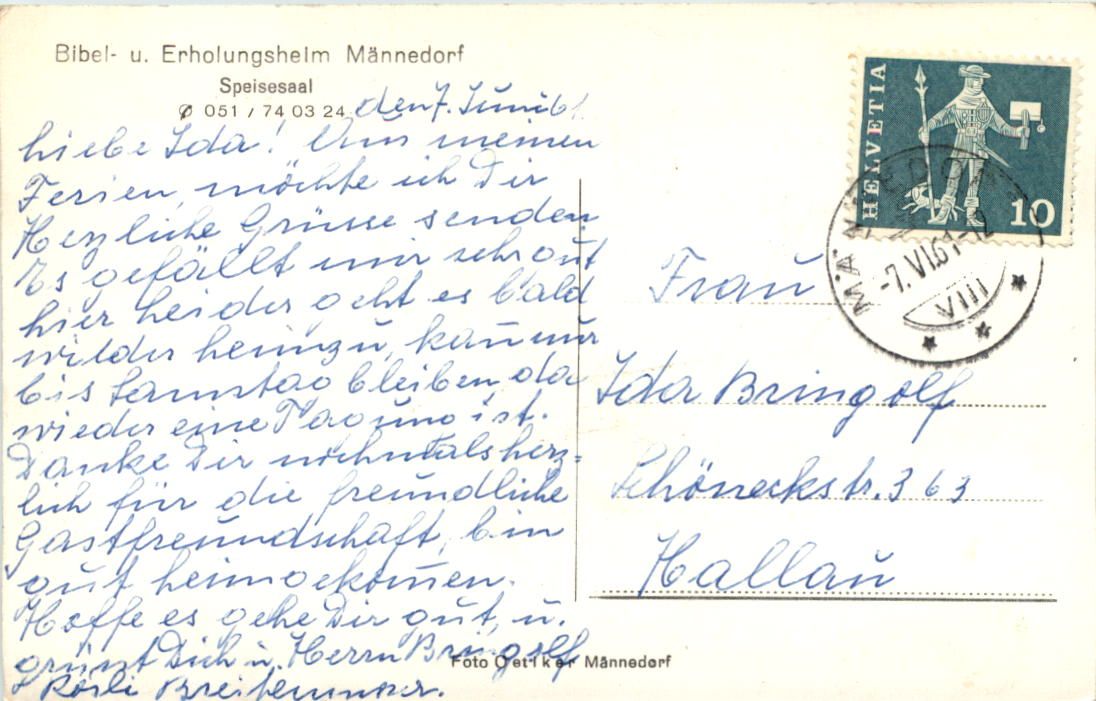 Bibel- u. Erholungsheim Männedorf
Speisesaal
✆ 051 / 74 03 24
den 7. Juni 61
Liebe Ida! Aus meinen
Ferien, möchte ich Dir
Herzliche Grüsse senden
Es gefällt mir sehr gut
hier leider geht es bald
wieder heimzu, kann nur
bis Samstag bleiben, da
wieder eine Tagung ist.
Danke Dir nochmals herz=
lich für die freundliche
Gastfreundschaft, bin
gut heimgekomen.
Hoffe es gehe Dir gut, u.
grüsst Dich u. Herrn Bringolf
Rösli
Foto Oetiker Männedorf
HELVETIA
10
MÄNNEDORF
-7.VI.61-12
VIII
Frau
Ida Bringolf
Schöneckstr. 363
Hallau